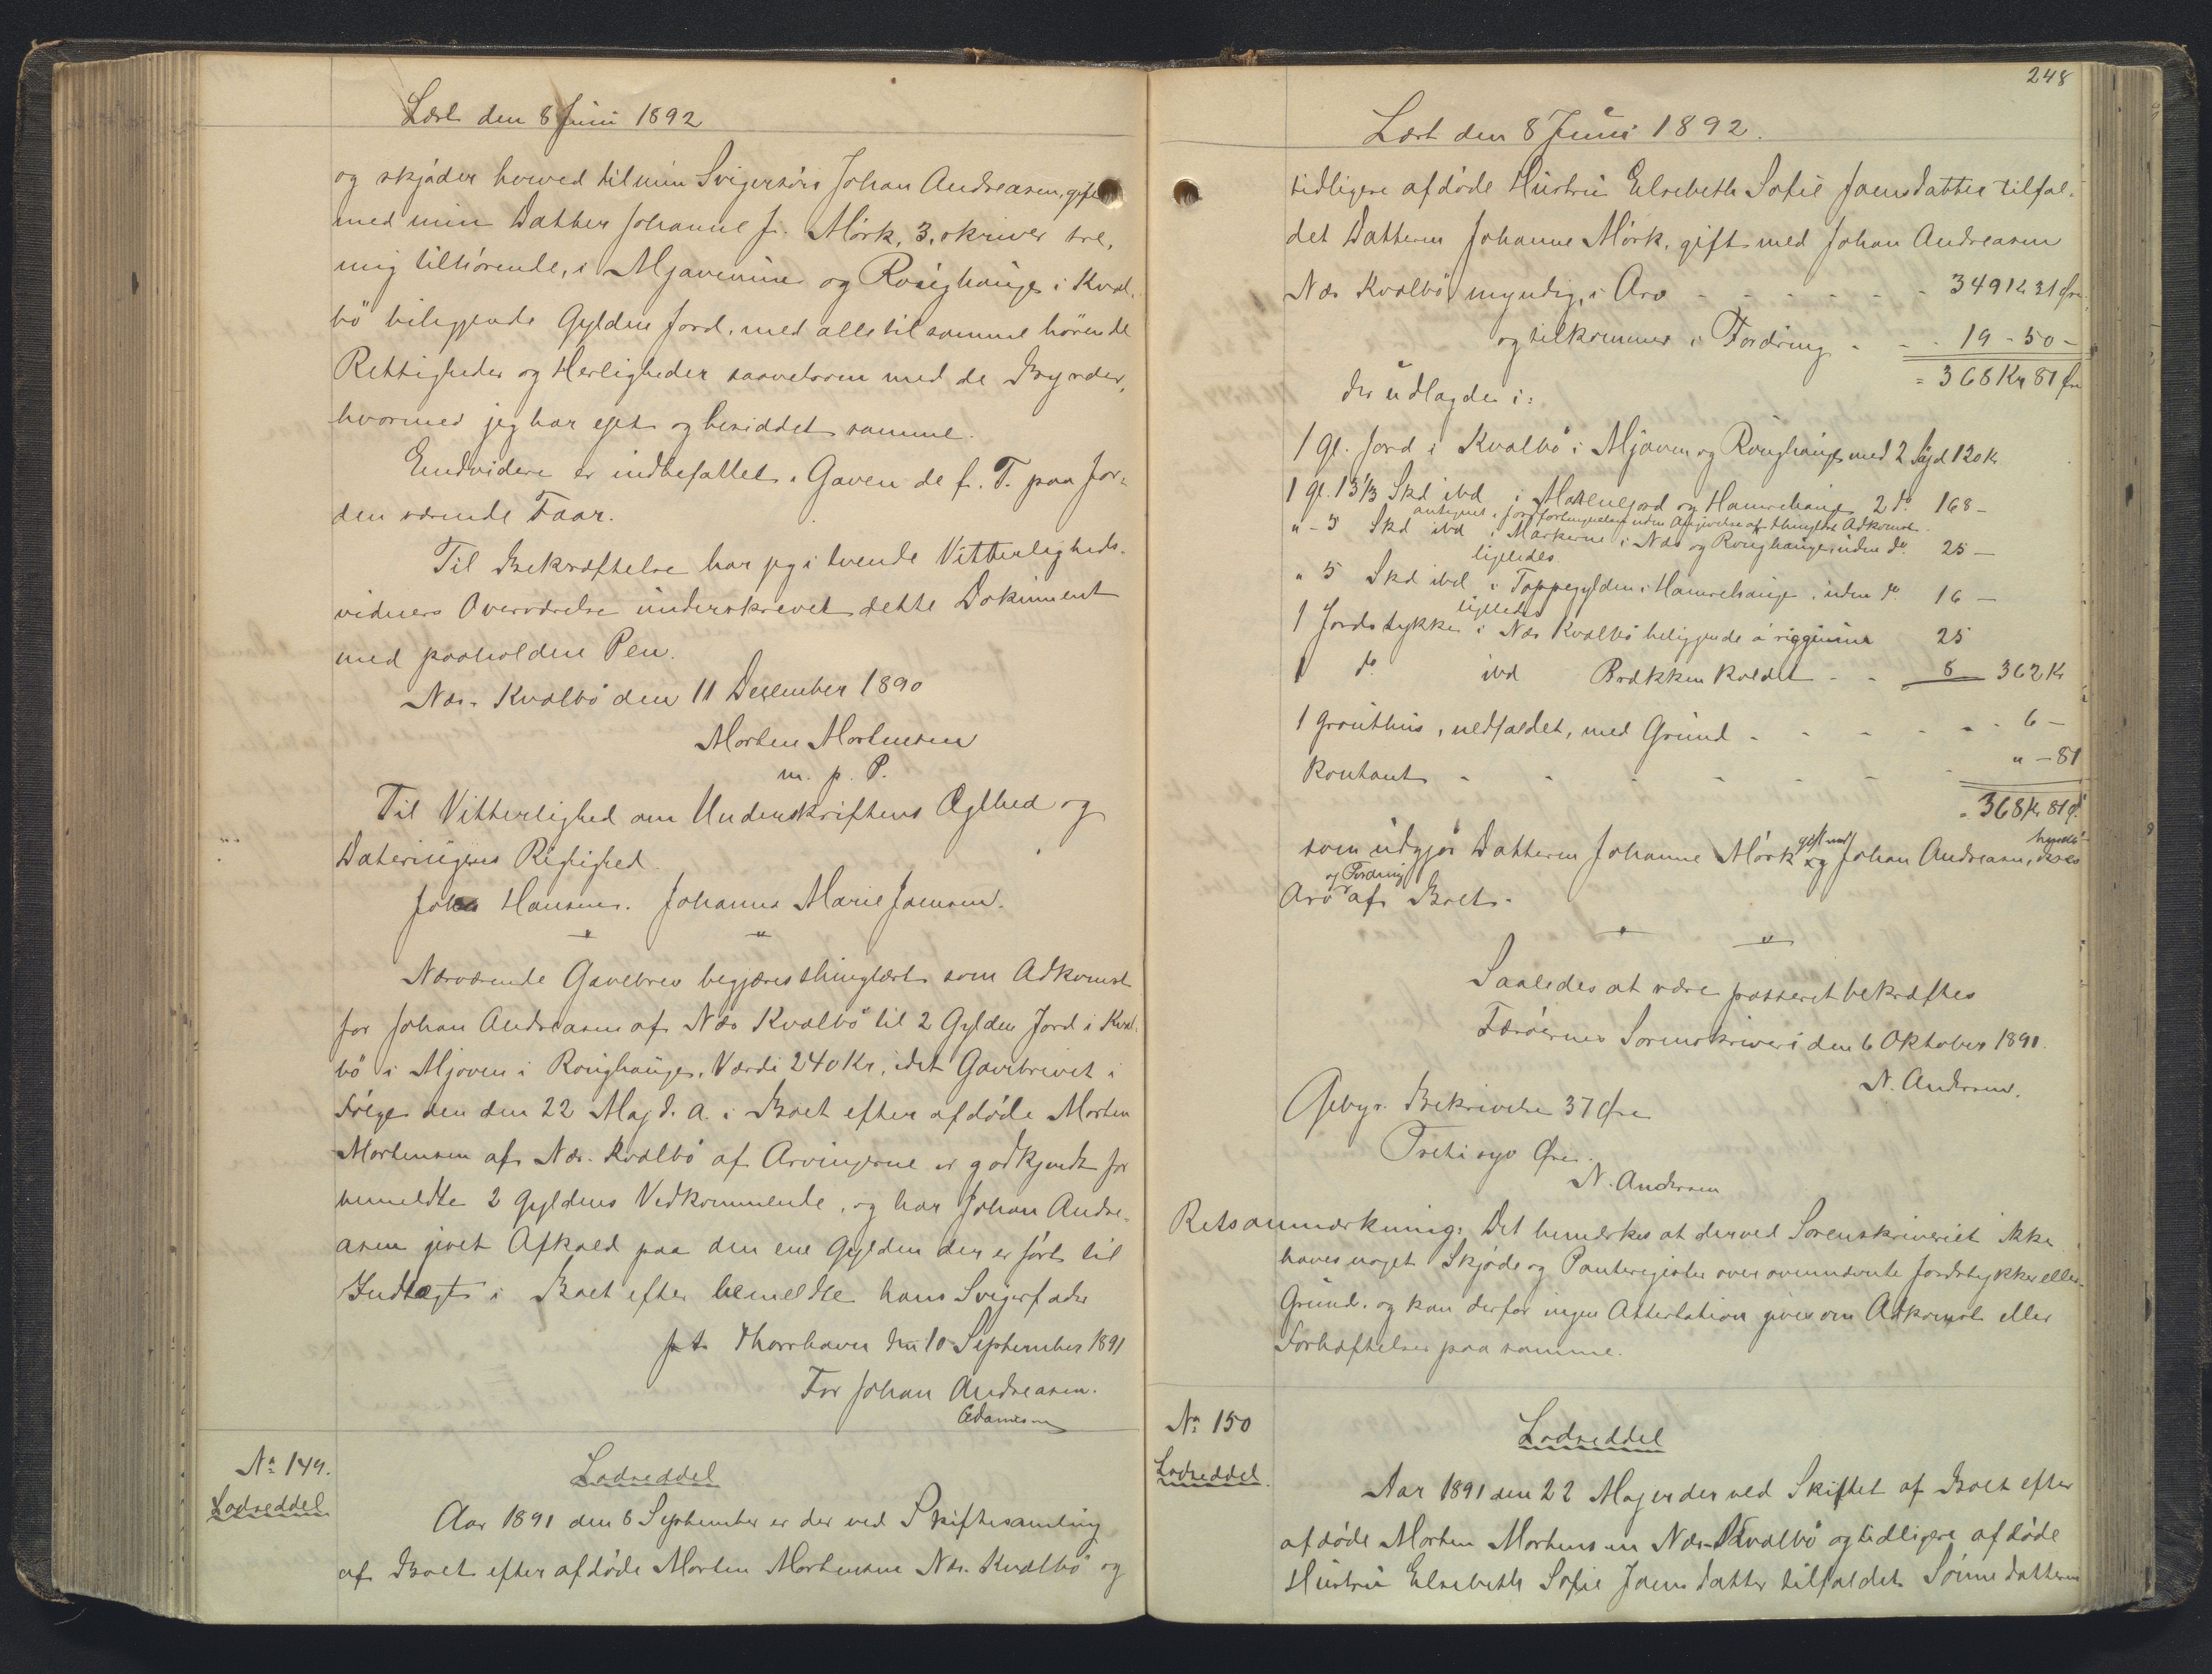 Læst den 8 Juni 1892
og skjøder herved til min Svigersøn Johan Andreasen, gift
med min Datter Johanne f. Mørk, 3, skriver tre,
mig tilhørende, i Mjavenine og Roughauge i Kval-
bø beliggende Gylden Jord, med alle til samme hørende
Rettigheder og Herligheder saavelsom med de Byrder,
hvormed jeg har ejet og besiddet samme.
Endvidere er indbefattet i Gaven de f. T. paa Jor-
den værende Faar.
Til Bekræftelse har jeg i tvende Vitterligheds-
vidners Overværelse underskrevet dette Dokument
med paaholden Pen.
Næs. Kvalbø den 11 December 1890
Morten Mortensen
m. p. P.
Til Vitterlighed om Underskriftens Ægthed og
Dateringens Rigtighed
Hansen. Johanna Marie Joensen.
Nærværende Gavebrev begjæres thinglæst som Adkomst
for Johan Andreasen af Næs Kvalbø til 2 Gylden Jord i Kval-
bø i Mjoven i Roughauge, Værdi 240 Kr, idet Gavebrevet i
Følge den den 22 Maj d. a. i Boet efter afdøde Morten
Mortensen af Næs. Kvalbø af Arvingerne er godkjendt for
bemeldte 2 Gyldens Vedkommende, og har Johan Andre-
asen givet Afkald paa den ene Gylden der er ført til
Indtægt i Boet efter bemeldte hans Svigerfader
p.t. Thorshavn den 10 September 1891
For Johan Andreasen.
No 149.
Lodseddel
Lodseddel
Aar 1891 den 8 September er der ved Skiftesamling
af Boet efter afdøde Morten Mortensen Næs. Kvalbø og
248
Læst den 8 Juni 1892.
tidligere afdøde Hustru Elsebeth Sofie Joensdatter tilfal-
det Datteren Johanne Mørk, gift med Johan Andreasen
Næs Kvalbø myndig, i Arv - - - - - - 349 Kr 31 Øre
og tilkommer i Fordring - - - 19 - 50 -
= 368 Kr 81 Øre
der udlagdes i:
1 Gl. Jord i Kvalbø i Mjoven og Roughauge med 2 120 Kr
1 Gl. 13 1/3 Skd ibd i og Hamrehauge 2 do 168 -
antegnet i Jordfortegnelsen uden Angivelse af thinglæst Adkomst.
" - 3 Skd ibd i Markerne i Næs og Roughauge, uden do 25 -
ligeledes
" 5 Skd ibd i Toppegylden i Hamrehauge, uden do 16 -
ligeledes
1 Jordstykke i Næs Kvalbø beliggende á 25
1 do ibd Brækken kaldet - - 8 362 Kr
1 Grouthus, nedfaldet, med Grund - - - - - - 6 -
Kontant - - - - - - - " - 81
= 368 Kr 81 Ø.
gift med
som udgjør Datteren Johanne Mørk og Johan Andreasen, deres
hendes
og Fordring
Arv af Boet.
Saaledes at være passeret bekræftes
Færøernes Sorenskriveri den 6 Oktober 1891.
N. Andersen.
Gebyr. Beskrivelse 37 Øre
Treti syv Øre.
N. Andersen
Retsanmærkning: Det bemærkes at der ved Sorenskriveriet ikke
haves noget Skjøde og Panteregister over ovennævnte Jordstykker eller
Grund, og kan derfor ingen Attestation gives om Adkomst eller
Forhæftelser paa samme.
No 150
Lodseddel.
Lodseddel
Aar 1891 den 22 Maj er der ved Skiftet af Boet efter
afdøde Morten Mortensen Næs-Kvalbø og tidligere afdøde
Hustru Elsebeth Sofie Joensdatter tilfaldet Sønnedatteren